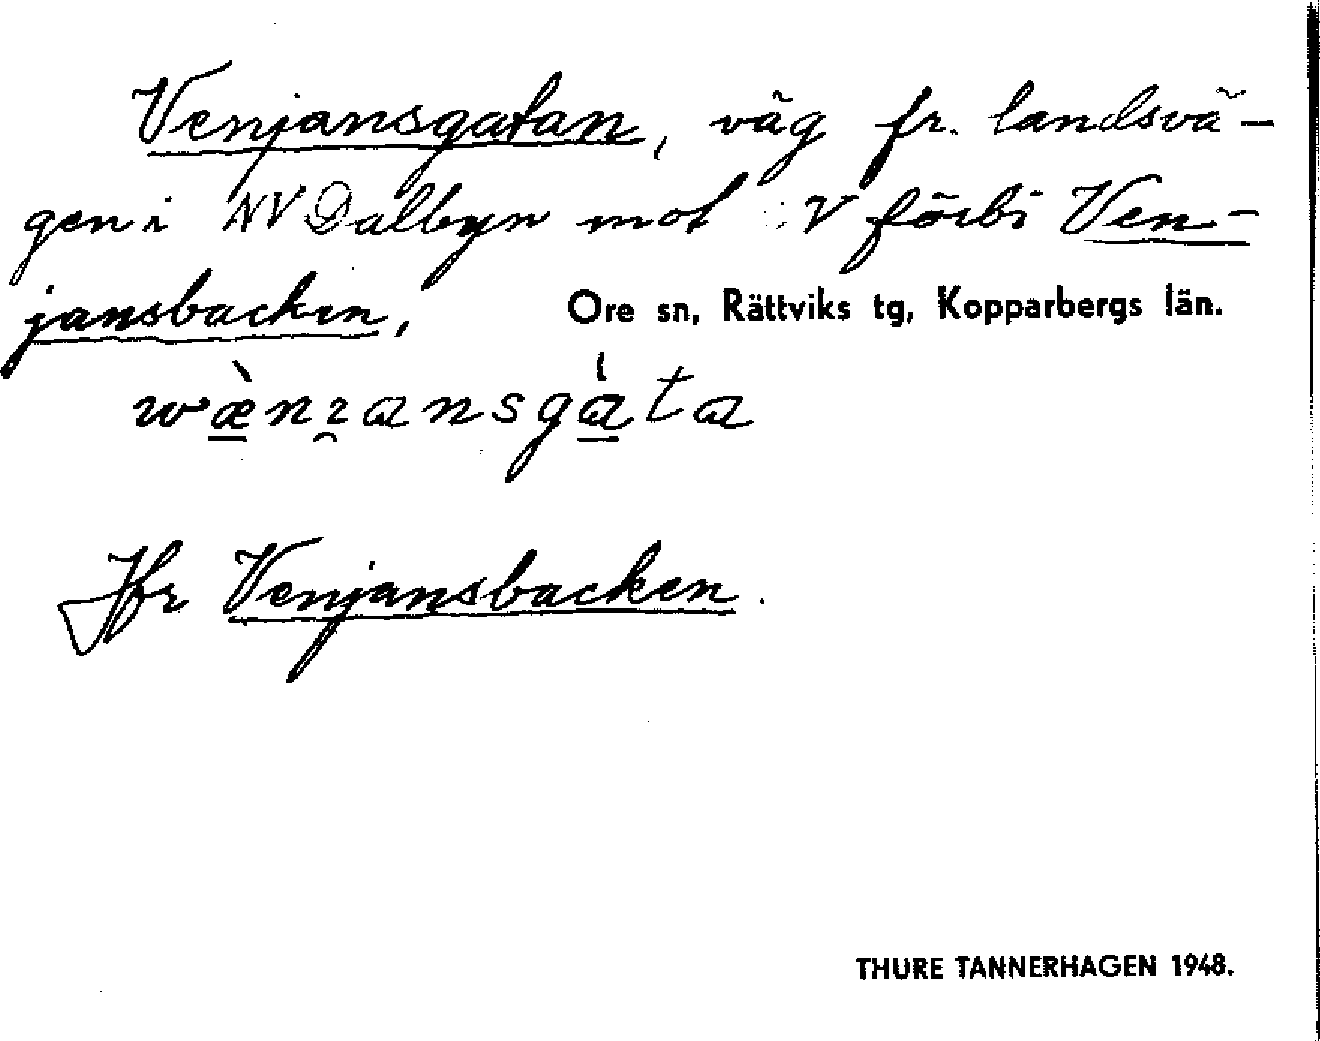 Venjansgatan, väg fr. landsvä-
gen i NV Dalbyn mot V förbi Ven-
jansbacken,
Ore sn, Rättviks tg, Kopparbergs län.
wæ̀nɪ̯ansgàta
Jfr Venjansbacken.
THURE TANNERHAGEN 1948.